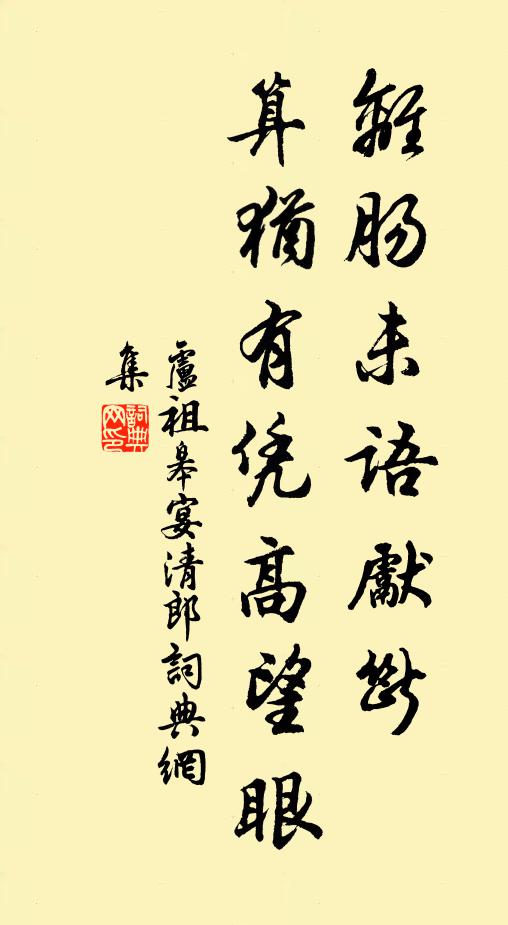 離腸未語獻斷
算猶有凭高望眼
盧祖皋宴清郎詞典網
集
詞典
网印